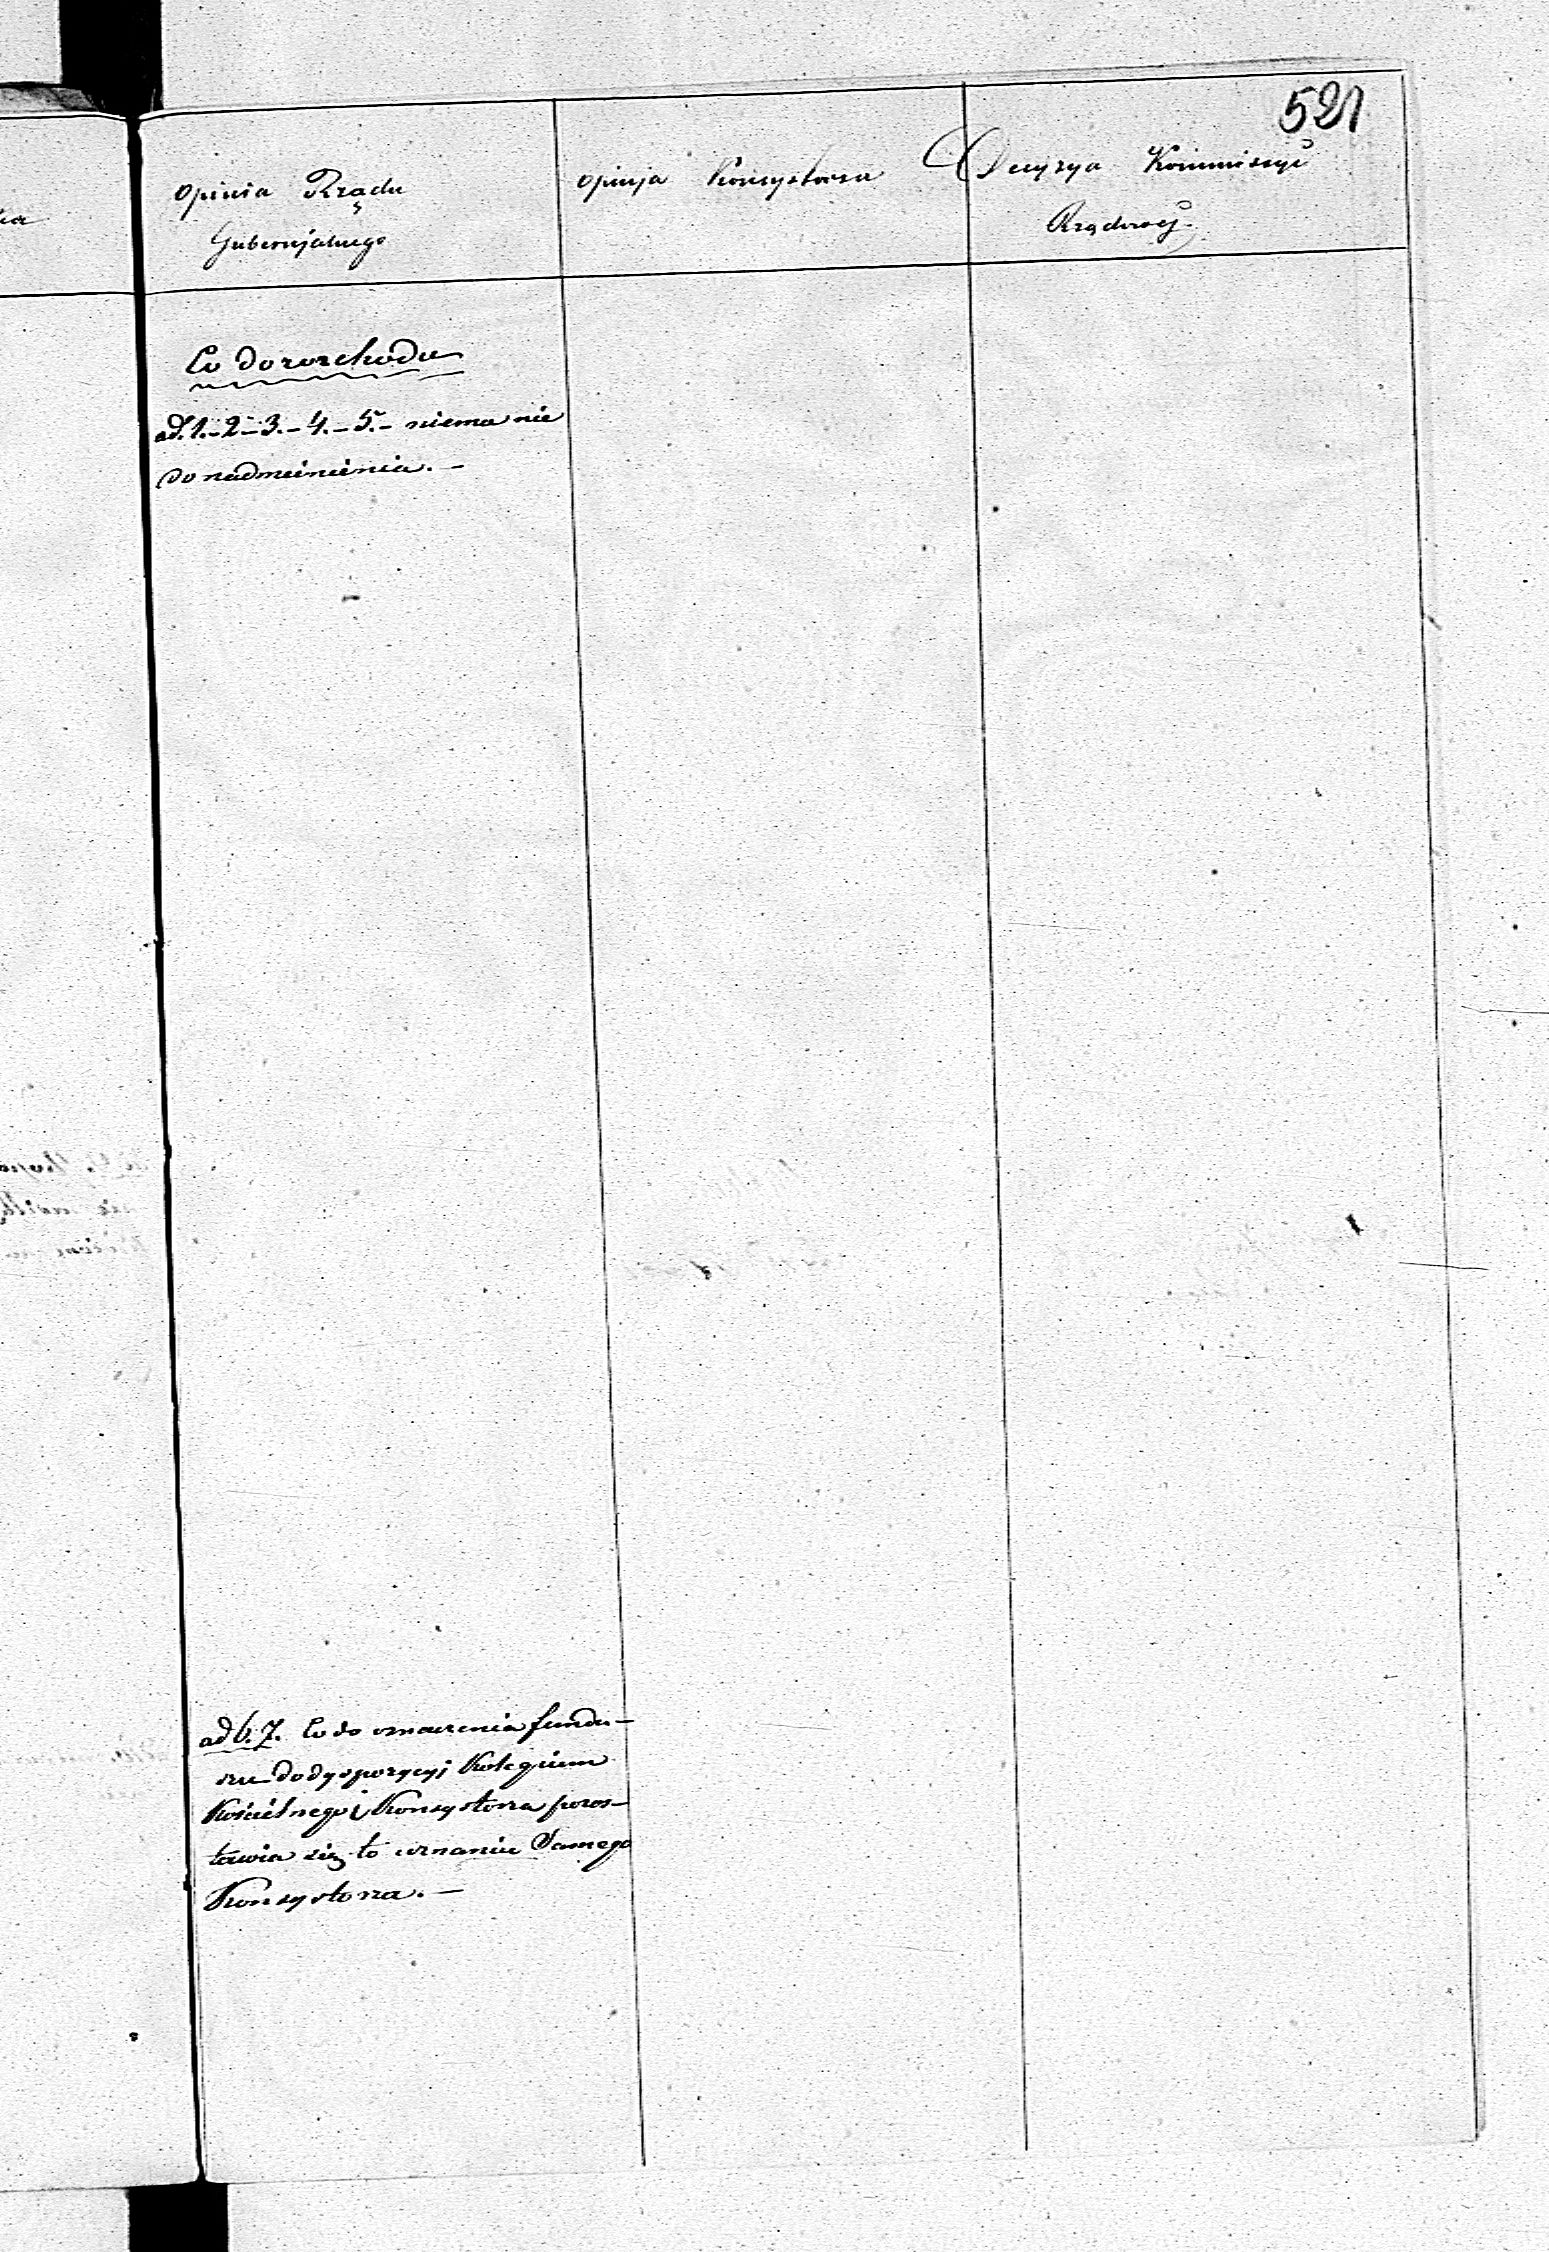 521
Opinia Rządu
Gubernjalnego
Opinja Konsystorza
Decyzya Kommissyi
Rządowéj
Co do rozchodu
ad. 1.-2-3.-4.-5.- niema nic
do nadmienienia.-
ad 6. 7. Co do oznaczenia fundu-
szu do dyspozycyi Kolegium
Kościelnego i Konsystorza pozos-
tawia się to uznaniu Samego
Konsystorza.-